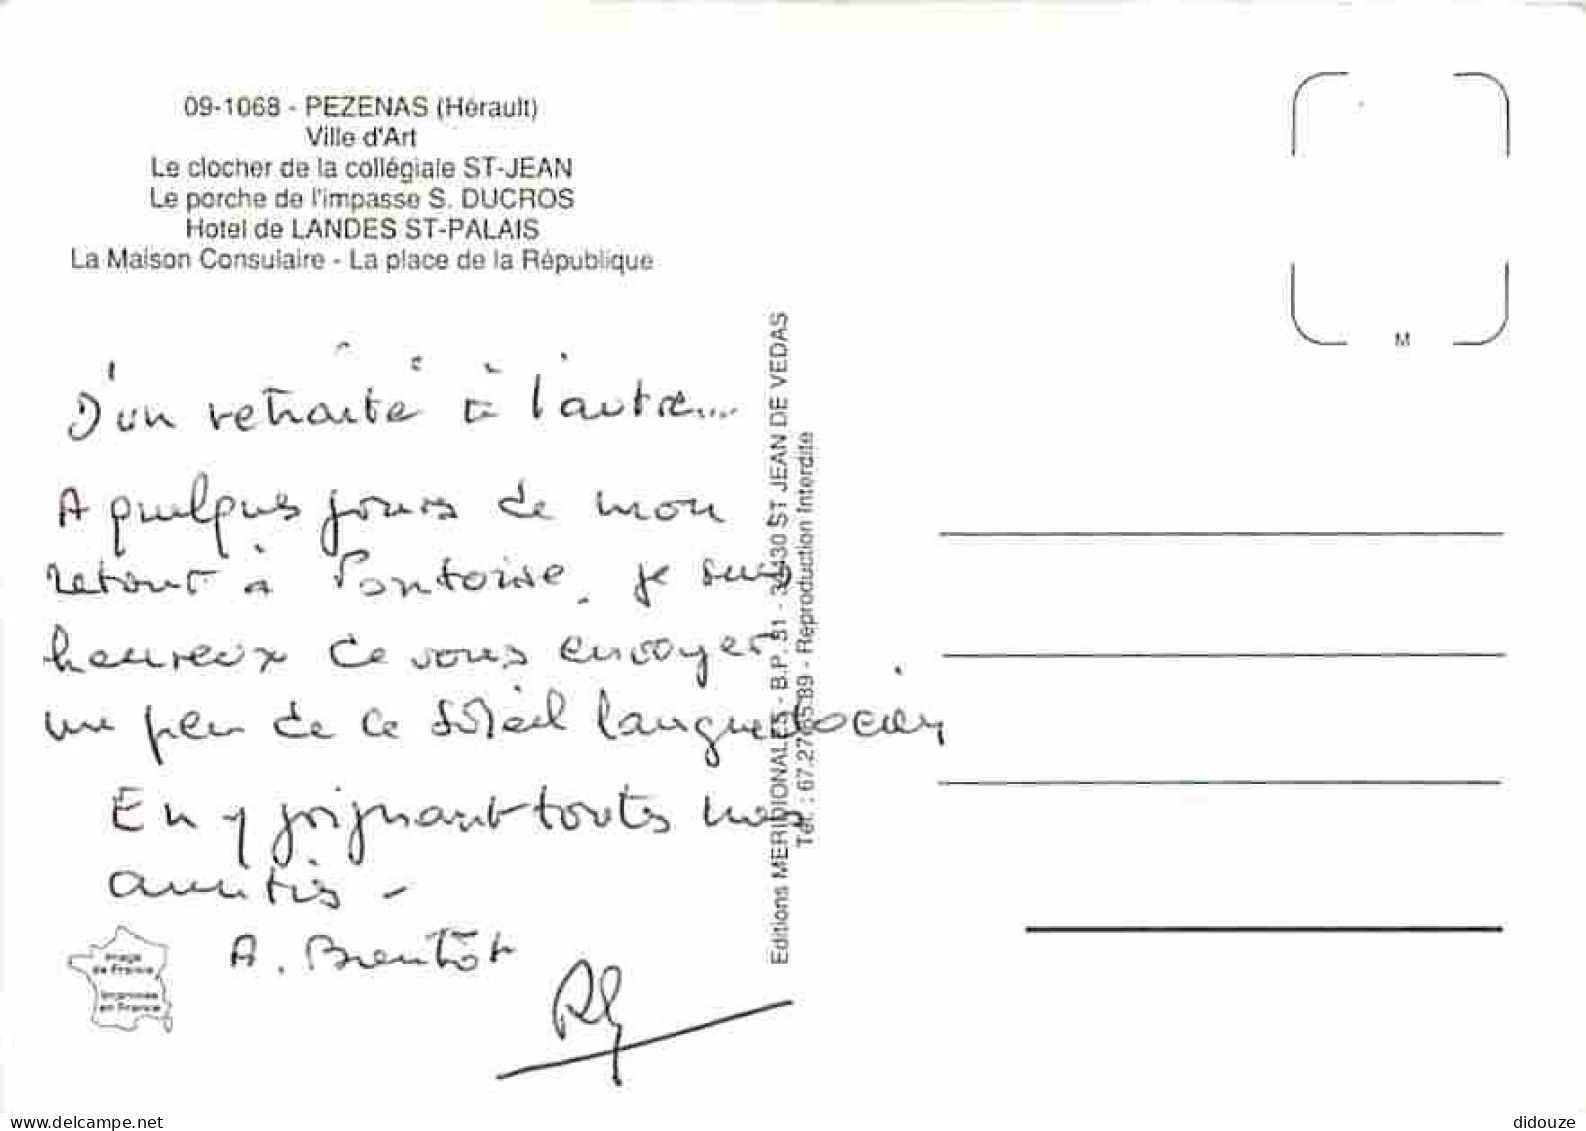 09-1068 - PEZENAS (Hérault)
Ville d'Art
Le clocher de la collégiale ST-JEAN
Le porche de l'impasse S. DUCROS
Hotel de LANDES ST-PALAIS
La Maison Consulaire - La place de la République
M
D'un retraité à l'autre...
A quelques jours de mon
retour à Pontoise, je suis
heureux de vous envoyer
un peu de ce soleil languedocien
En y joignant toutes nos
amitiés -
A. Bientôt
Editions MERIDIONALES - B.P. 31 - 34430 ST JEAN DE VEDAS
Tél. : 67.27 - Reproduction Interdite
Image
de France
Imprimée
en France
delcampe.net
didouze